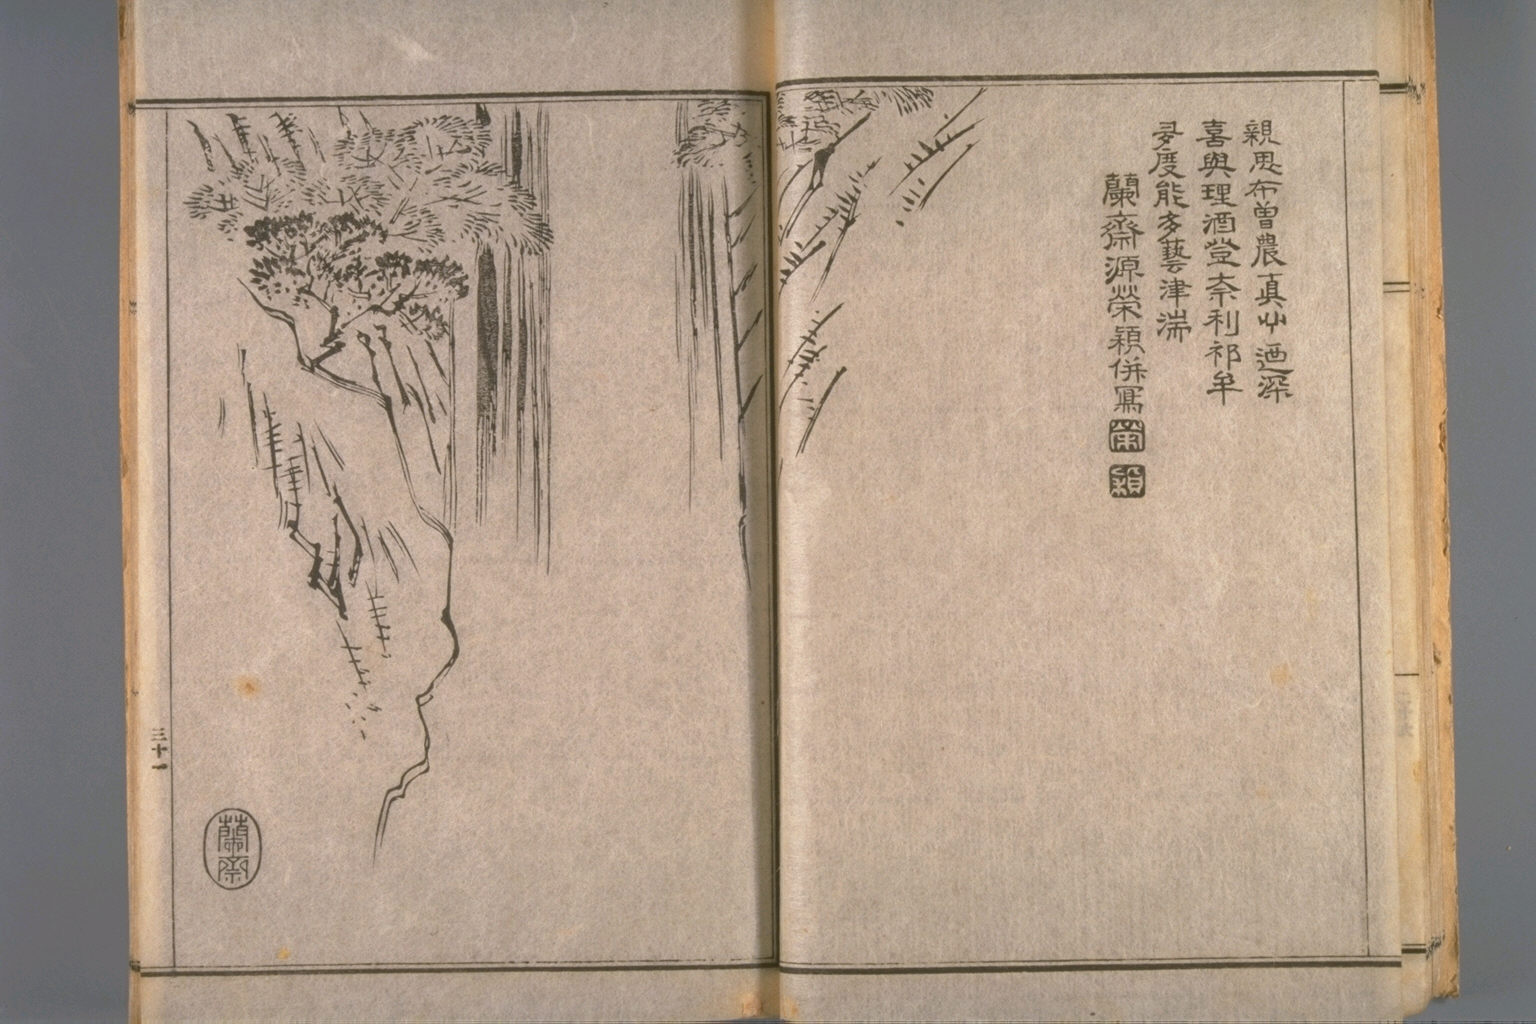 親思布曽農真心迺深
喜與理酒登奈利祁牟
多度能多藝津湍
蘭齋源榮穎併寫
榮
穎
三十一
蘭齋